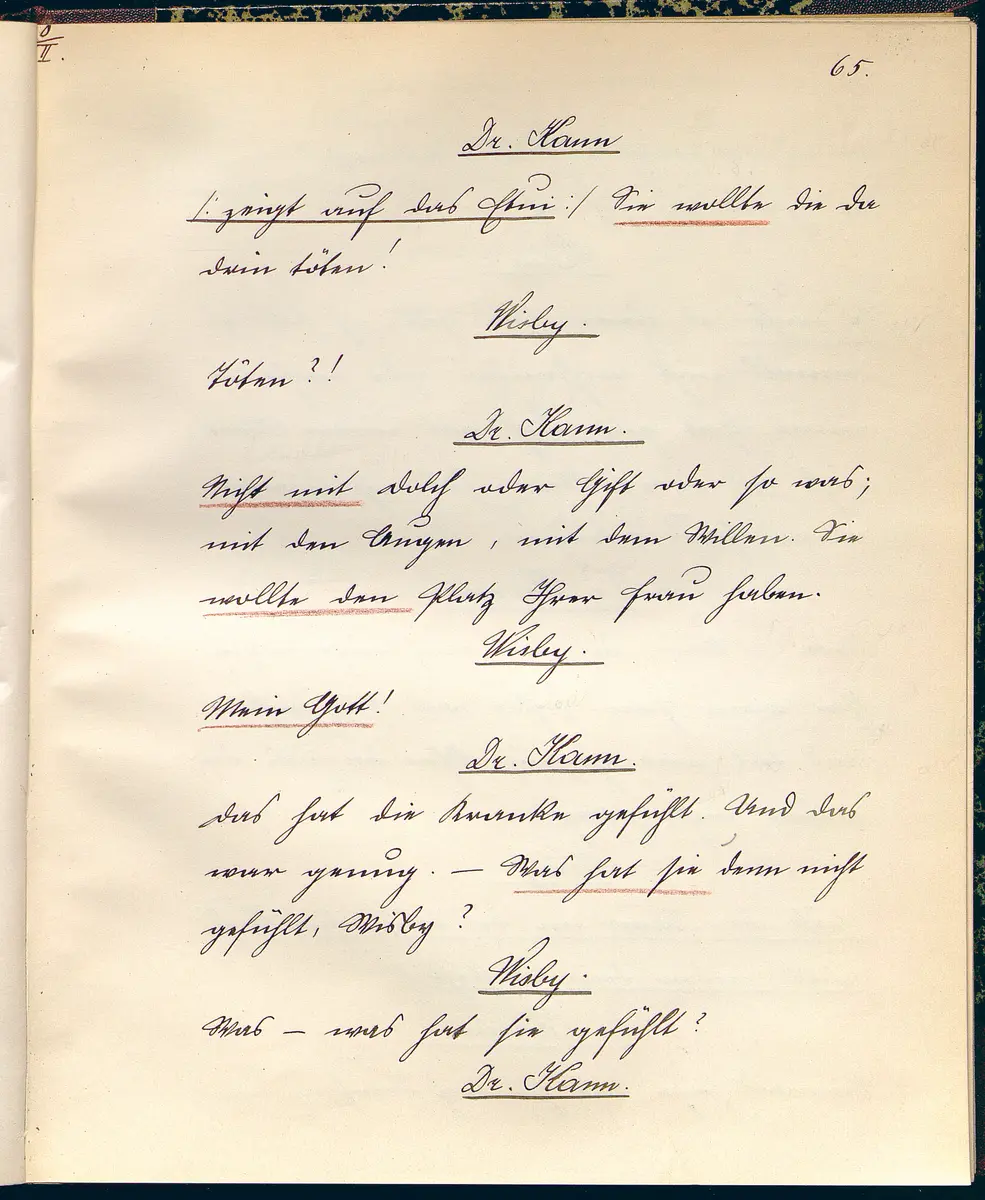 65.
Dr. Hann
/: zeigt auf das Etui :/ Sie wollte die da
drin töten!
Wisby.
Töten?!
Dr. Hann.
Nicht mit Dolch oder Gift oder so was;
mit den Augen, mit dem Willen. Sie
wollte den Platz Ihrer Frau haben.
Wisby.
Mein Gott!
Dr. Hann.
Das hat die Kranke gefühlt. Und das
war genug. — Was hat sie denn nicht
gefühlt, Wisby?
Wisby.
Was — was hat sie gefühlt?
Dr. Hann.